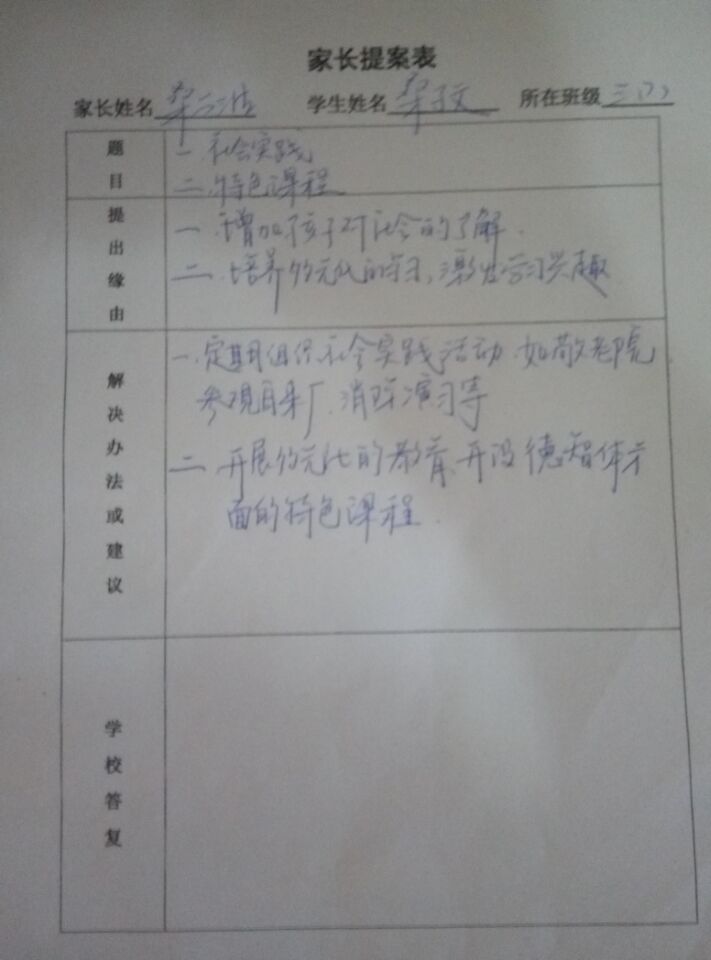 家长提案表
家长姓名 学生姓名 所在班级 三
题目
一. 社会实践
二. 特色课程
提出缘由
一. 增加孩子对社会的了解.
二. 培养多元化的学习, 激发学习兴趣.
解决办法或建议
一. 定期组织社会实践活动. 如敬老院
参观自来厂. 消防演习等
二. 开展多元化的教育. 开设德智体方
面的特色课程.
学校答复